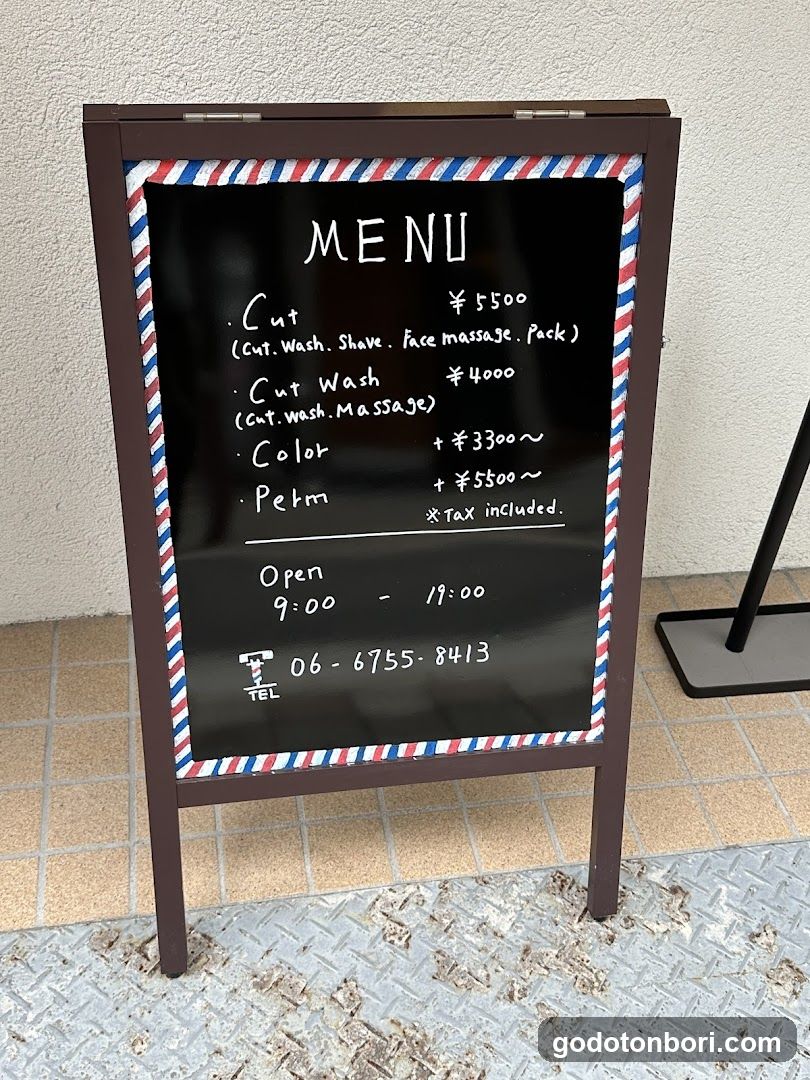 MENU
・Cut ¥5500
(Cut. Wash. Shave. Face massage. Pack)
・Cut Wash ¥4000
(Cut. Wash. Massage)
・Color +¥3300～
・Perm +¥5500～
※Tax included.
Open
9:00 - 19:00
TEL 06-6755-8413
godotonbori.com